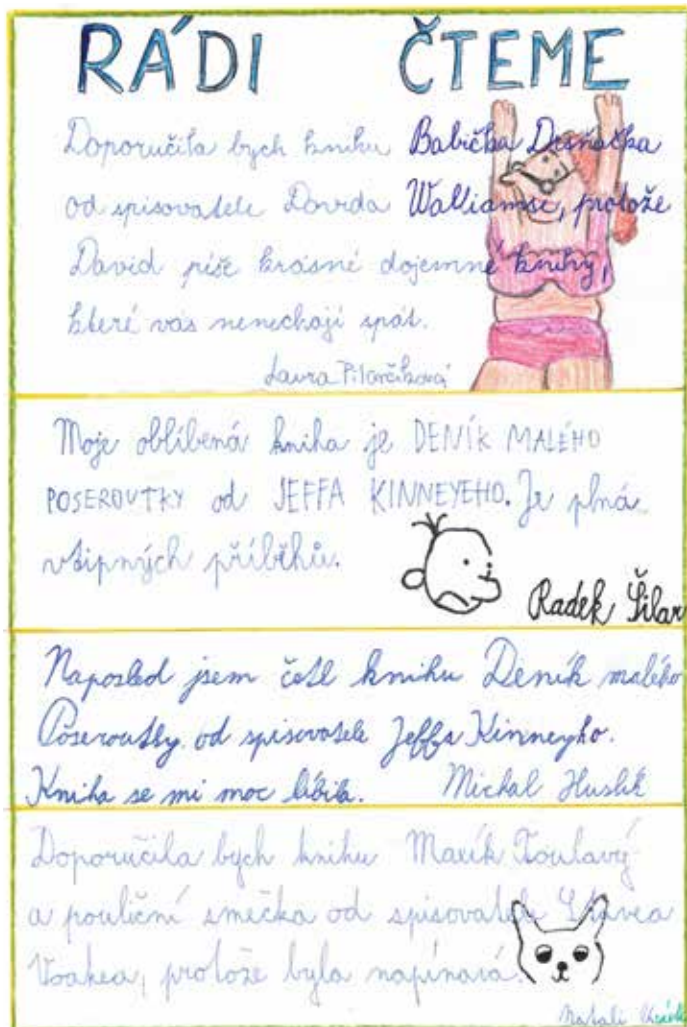 RÁDI ČTEME
Doporučila bych knihu Babička Drsňačka
od spisovatele Davida Walliamse, protože
David píše krásné dojemné knihy,
které vás nenechají spát.
Laura Pilarčíková
Moje oblíbená kniha je DENÍK MALÉHO
POSEROUTKY od JEFFA KINNEYEHO. Je plná
vtipných příběhů.
Radek Šilar
Naposled jsem četl knihu Deník malého
Poseroutky od spisovatele Jeffa Kinneyho.
Kniha se mi moc líbila. Michal Huslík
Doporučila bych knihu Maxík Toulavý
a pouliční smečka od spisovatele
Voakea, protože byla napínavá.
Natali